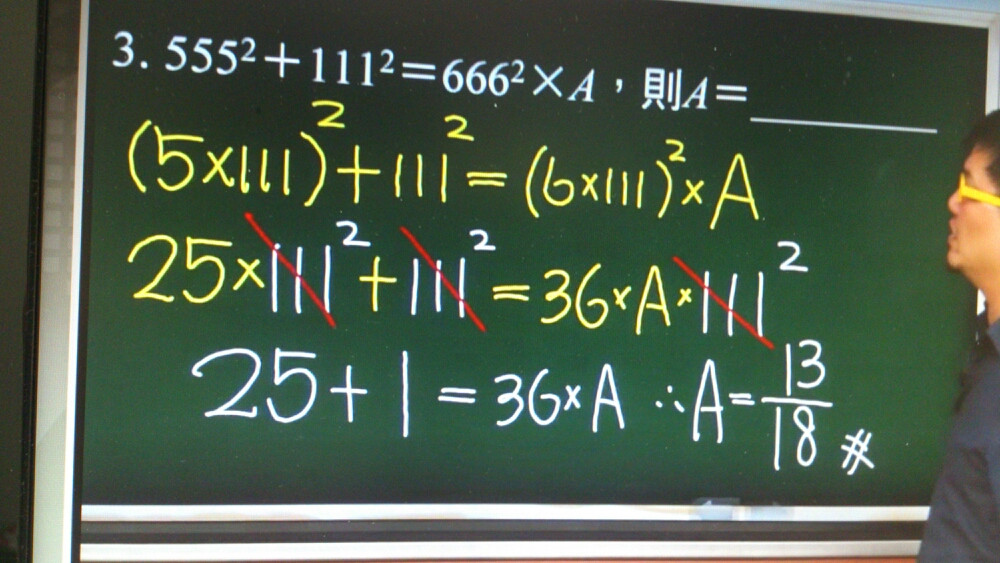 3. 555²+111²=666²×A，則A=______
(5×111)²+111²=(6×111)²×A
25×111²+111²=36×A×111²
25+1=36×A ∴A=13/18 #